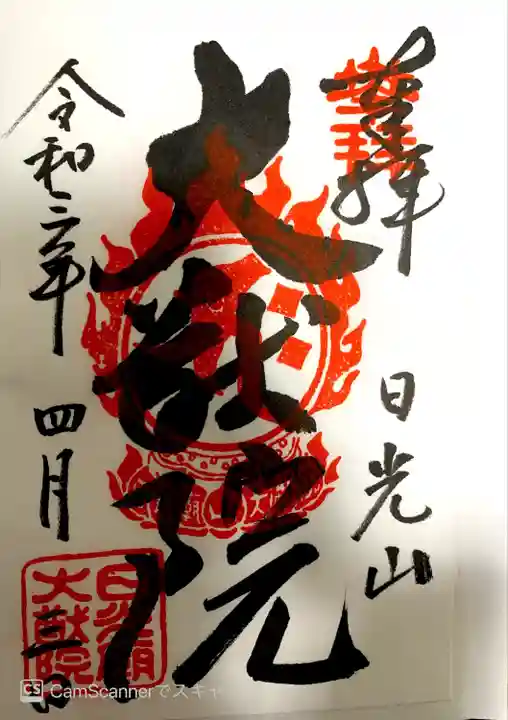 奉拝
日光山
大猷院
令和三年
四月
三日
日光廟
大猷院
CS CamScannerでスキャ